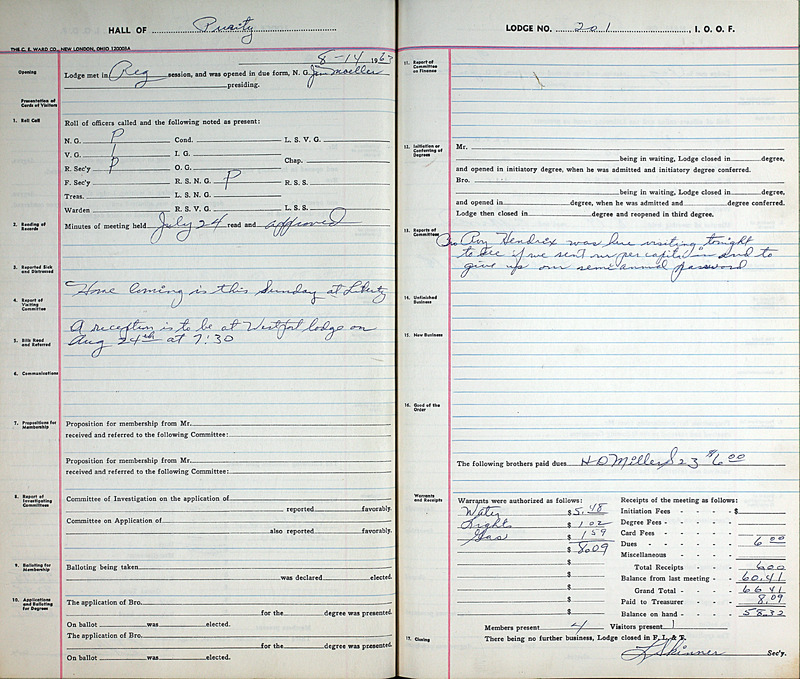 HALL OF Purity
THE C. E. WARD CO., NEW LONDON, OHIO 120005A
8-14 1967
Opening
Lodge met in Reg session, and was opened in due form, N. G. Jim Moeller
presiding.
Presentation of Cards of Visitors
1. Roll Call
Roll of officers called and the following noted as present:
N. G. P Cond. L. S. V. G.
V. G. I. G. Chap.
R. Sec'y P O. G.
F. Sec'y R. S. N. G. P R. S. S.
Treas. L. S. N. G.
Warden R. S. V. G. L. S. S.
2. Reading of Records
Minutes of meeting held July 24 read and approved
3. Reported Sick and Distressed
Home coming is this Sunday at Liberty
4. Report of Visiting Committee
A reception is to be at Westport lodge on
5. Bills Read and Referred
Aug 24th at 7:30
6. Communications
7. Propositions for Membership
Proposition for membership from Mr.
received and referred to the following Committee:
Proposition for membership from Mr.
received and referred to the following Committee:
8. Report of Investigating Committees
Committee of Investigation on the application of
reported favorably.
Committee on Application of
also reported favorably.
9. Balloting for Membership
Balloting being taken
was declared elected.
10. Applications and Balloting for Degrees
The application of Bro.
for the degree was presented.
On ballot was elected.
The application of Bro.
for the degree was presented.
On ballot was elected.
LODGE NO. 201, I. O. O. F.
11. Report of Committee on Finance
12. Initiation or Conferring of Degrees
Mr.
being in waiting, Lodge closed in degree,
and opened in initiatory degree, when he was admitted and initiatory degree conferred.
Bro.
being in waiting, Lodge closed in degree,
and opened in degree, when he was admitted and degree conferred.
Lodge then closed in degree and reopened in third degree.
13. Reports of Committees
Bro Roy Hendrix was here visiting tonight
to see if we sent our per capita in and to
give us our semi annual password
14. Unfinished Business
15. New Business
16. Good of the Order
The following brothers paid dues H D Miller $6.00
Warrants and Receipts
Warrants were authorized as follows:
Water $ 5.48
Lights $ 1.02
Gas $ 1.59
$ 8.09
$
$
$
$
$
Receipts of the meeting as follows:
Initiation Fees - - - $
Degree Fees - - - -
Card Fees - - - -
Dues - - - - - 6.00
Miscellaneous - - - -
Total Receipts - - 6.00
Balance from last meeting - - 60.41
Grand Total - - 66.41
Paid to Treasurer - - 8.09
Balance on hand - - 58.32
Members present 4 Visitors present 1
17. Closing
There being no further business, Lodge closed in F. L. & T.
L Skinner Sec'y.